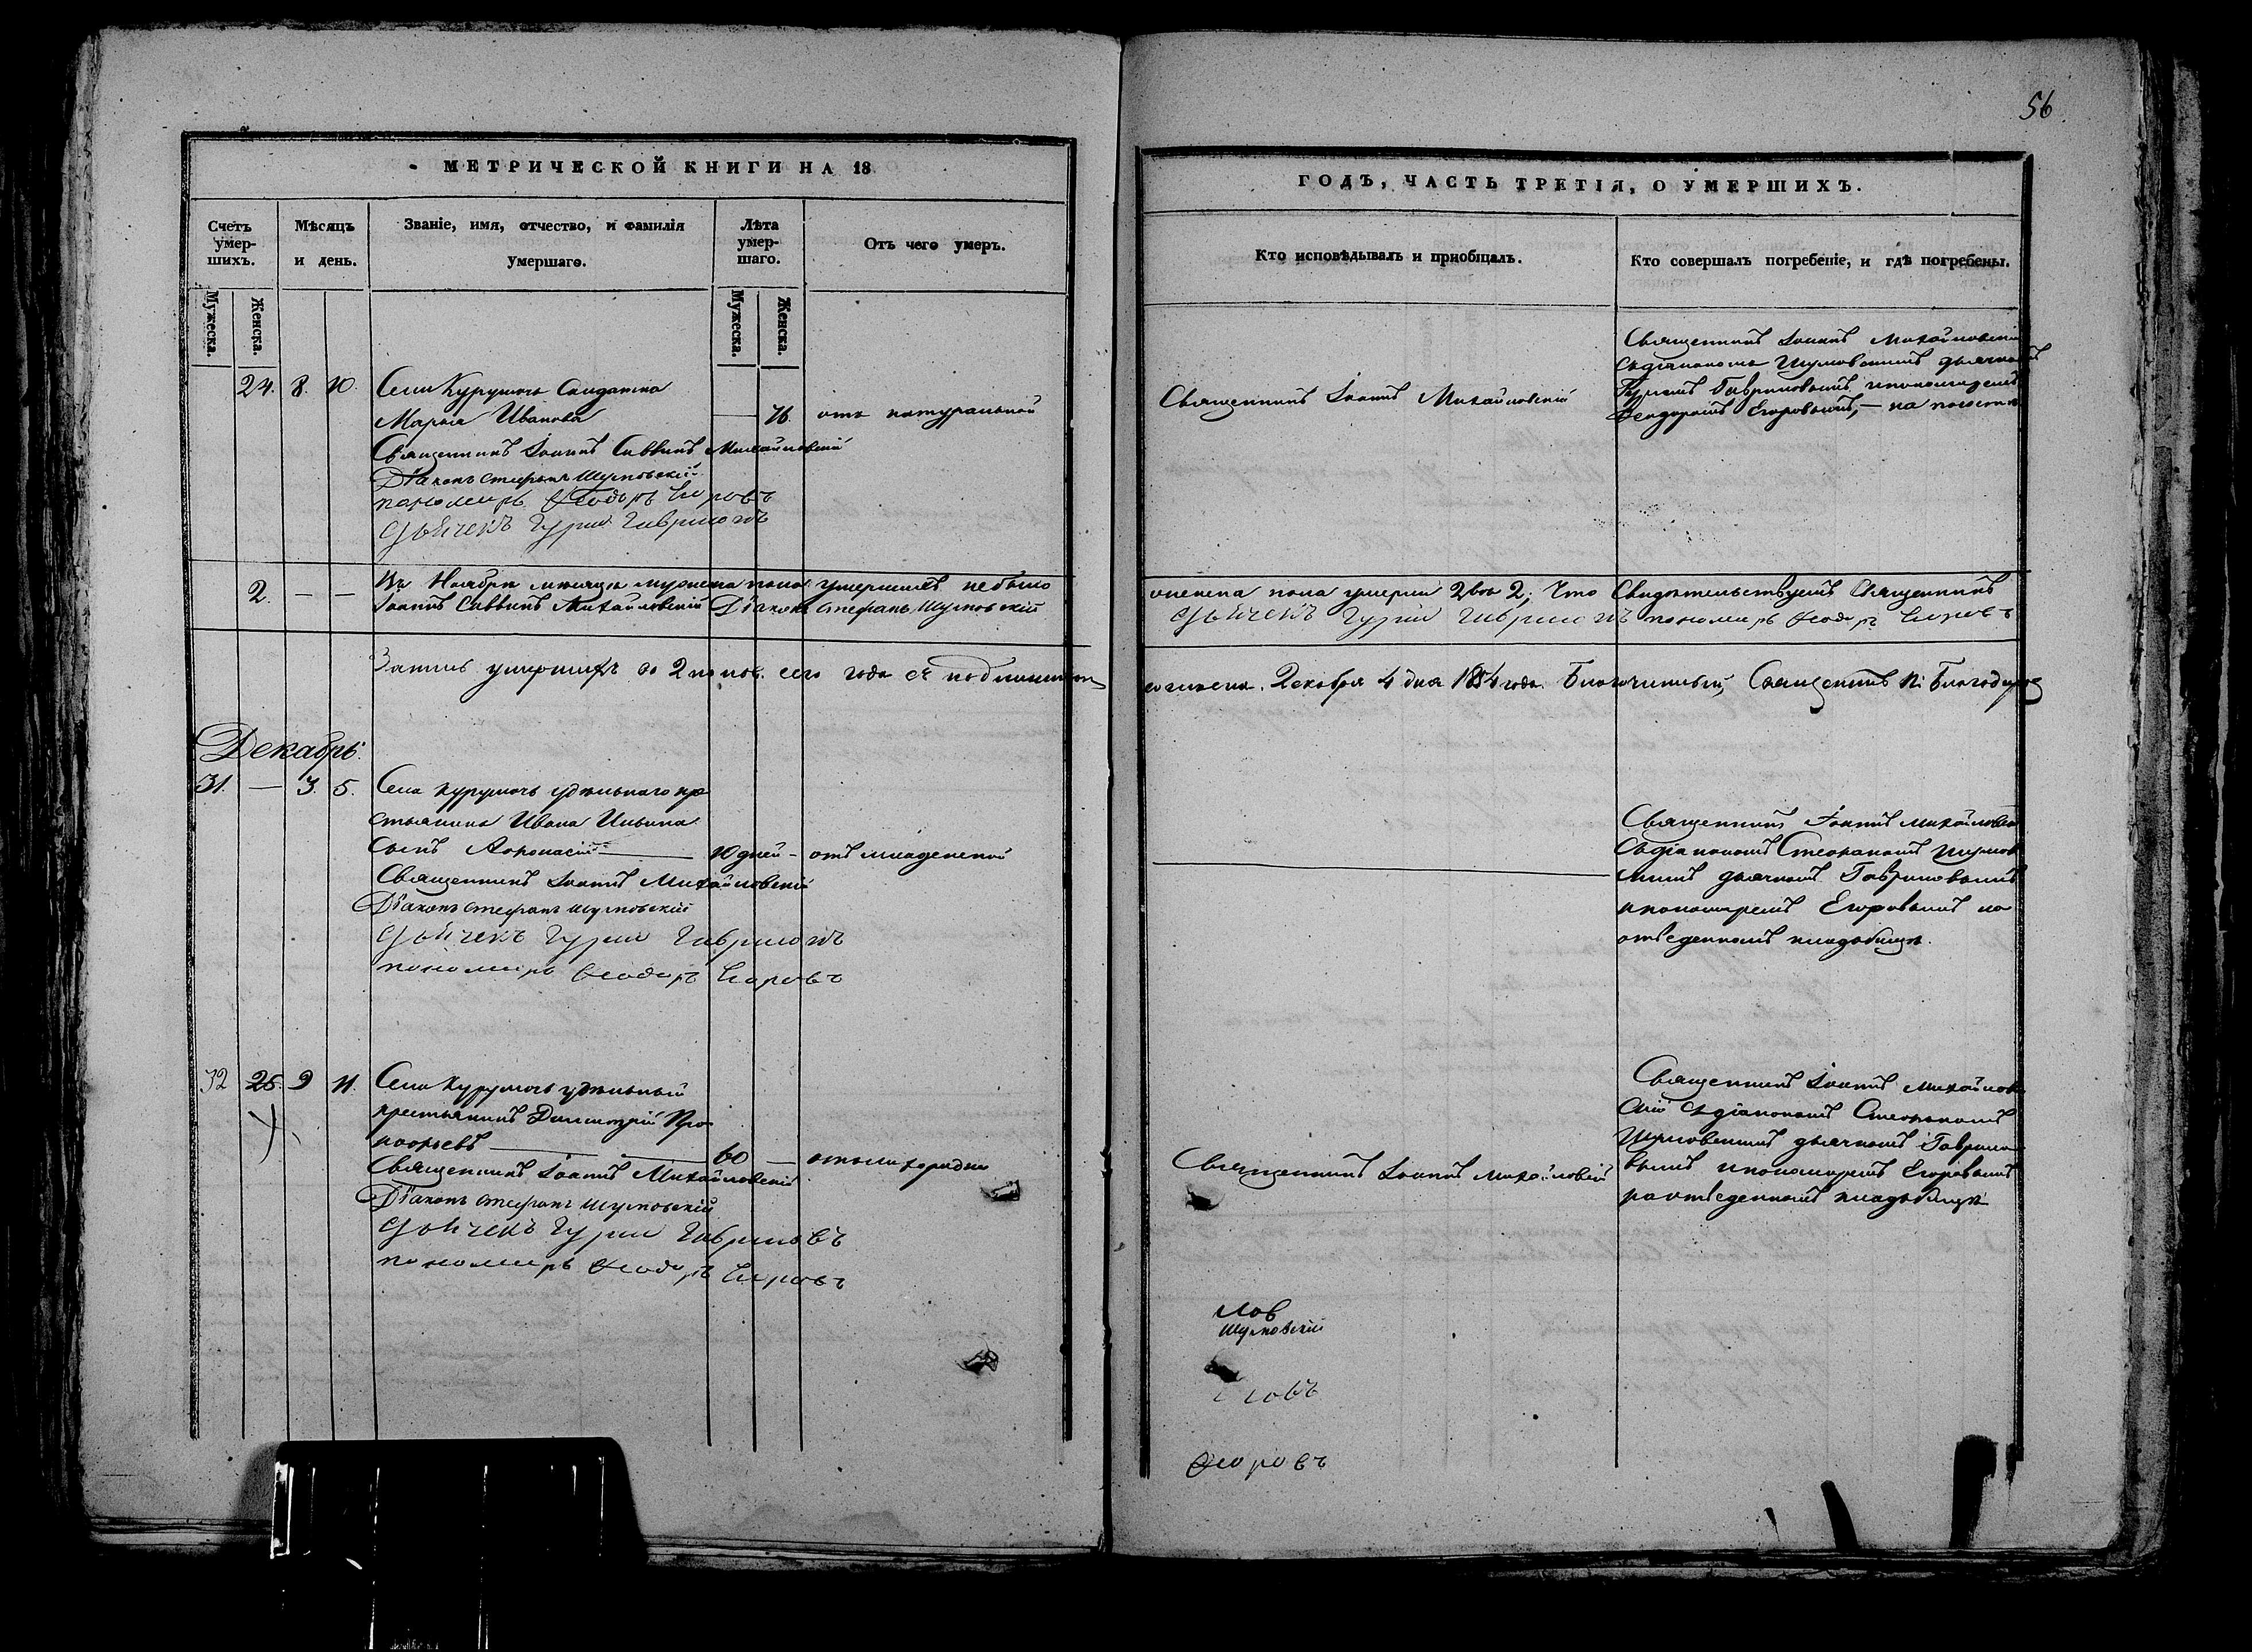 56
МЕТРИЧЕСКОЙ КНИГИ НА 18
Счетъ умер-шихъ.
Мѣсяцъ и день.
Званіе, имя, отчество, и фамилія умершаго.
Лѣта умер-шаго.
Отъ чего умеръ.
Мужеска.
Женска.
Мужеска.
Женска.
24. 8. 10. Села Курумочъ Солдатка
Марья Иванова — 76. отъ натуральной
Священникъ Іоаннъ Саввинъ Михайловскій
Діаконъ Стефанъ Шумовскій
пономарь Феодоръ Егоровъ
дьячекъ Гурій Гавриловъ
2. — — Въ Ноябрѣ мѣсяцѣ мужеска пола умершихъ небыло
Іоаннъ Саввинъ Михайловскій Діаконъ Стефанъ Шумовскій
Запись умершихъ во 2 полов. сего года съ подлинною
Декабрь.
31. — 3. 5. Села Курумочъ удѣльнаго кре
стьянина Ивана Ильина
сынъ Афонасій — 10 дней — отъ младенской
Священникъ Іоаннъ Михайловскій
Діаконъ Стефанъ Шумовскій
дьячекъ Гурій Гавриловъ
пономарь Феодоръ Егоровъ
32 25. 9 11. Села Курумочъ удѣльный
крестьянинъ Димитрій Про
кофьевъ — 60 — отъ лихорадки
Священникъ Іоаннъ Михайловскій
Діаконъ Стефанъ Шумовскій
дьячекъ Гурій Гавриловъ
пономарь Феодоръ Егоровъ
ГОДЪ, ЧАСТЬ ТРЕТІЯ, О УМЕРШИХЪ.
Кто исповѣдывалъ и пріобщалъ.
Кто совершалъ погребеніе, и гдѣ погребены.
Священникъ Іоаннъ Михайловскій
Священникъ Іоаннъ Михайловскій
съ діакономъ Шумовскимъ дьячкомъ
Гуріемъ Гавриловымъ и пономаремъ
Феодоромъ Егоровымъ, — на
женска пола умерли двѣ 2; Что свидѣтельствуемъ Священникъ
дьячекъ Гурій Гавриловъ пономарь Феодоръ Егоровъ
согласна. Декабря 4 дня 1854 года. Благочинный, Священникъ
Священникъ Іоаннъ Михайловскій
съ діакономъ Стефаномъ Шумов
скимъ дьячкомъ Гавриловымъ
и пономаремъ Егоровымъ на
отведенномъ кладбищѣ.
Священникъ Іоаннъ Михайловскій
Священникъ Іоаннъ Михайлов
скій съ діакономъ Стефаномъ
Шумовскимъ дьячкомъ Гаврило
вымъ и пономаремъ Егоровымъ
на отведенномъ кладбищѣ
лов
Шумовскій
ловъ
Егоровъ